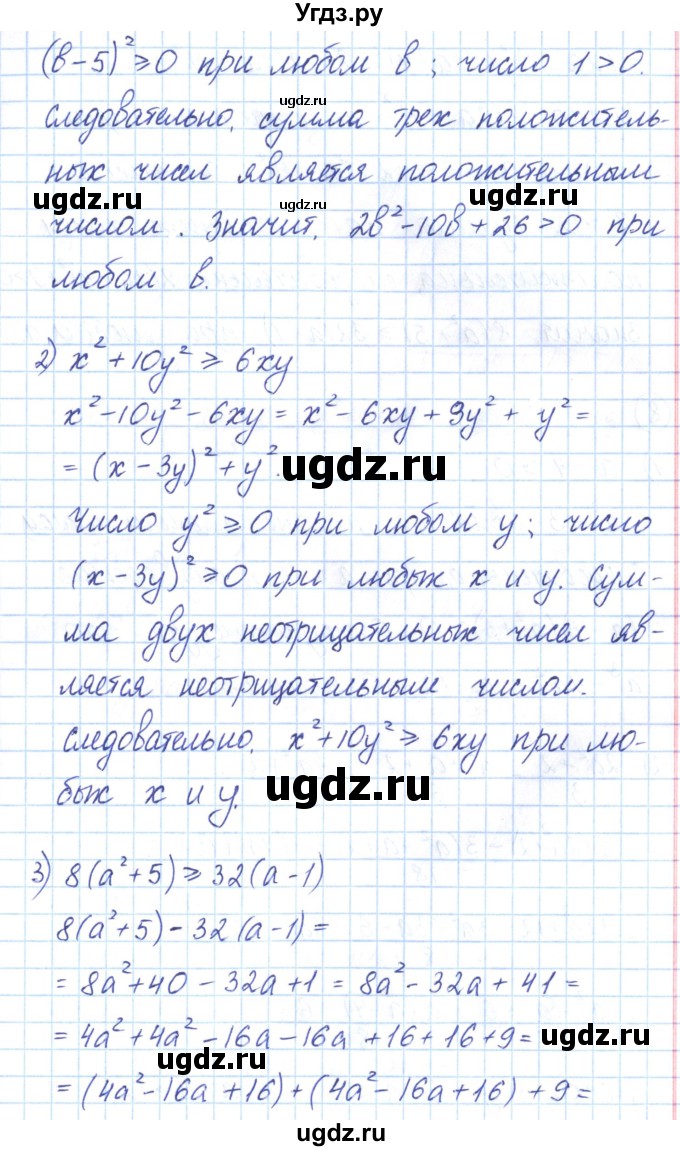 Угдз.ру
(в-5)² ≥ 0 при любом в; число 1 > 0.
ugdz.ru
Следовательно, сумма трех положитель-
ных чисел является положительным
ugdz.ru ugdz.ru ugdz.ru
числом. Значит, 2в²-10в+26>0 при
любом в.
2) x²+10y² ≥ 6xy
x²-10y²-6xy = x²-6xy+9y²+ y² =
= (x-3y)²+y².
ugdz.ru
Число y² ≥ 0 при любом y; число
(x-3y)² ≥ 0 при любых x и y. Сум-
ма двух неотрицательных чисел яв-
ляется неотрицательным числом.
Следовательно, x²+10y² ≥ 6xy при лю-
бых x и y.
ugdz.ru
3) 8(a²+5) ≥ 32(a-1)
8(a²+5)-32(a-1)=
= 8a²+40-32a+1 = 8a²-32a+41=
= 4a²+4a²-16a-16a+16+16+9=
ugdz.ru ugdz.ru
= (4a²-16a+16)+(4a²-16a+16)+9=
ugdz.ru